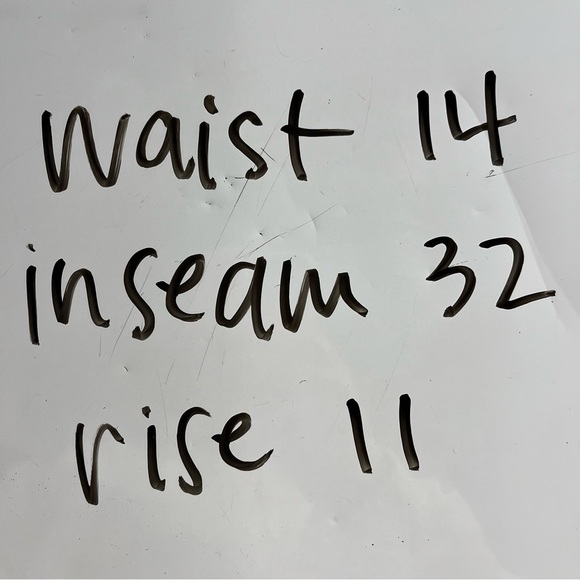 waist 14
inseam 32
rise 11